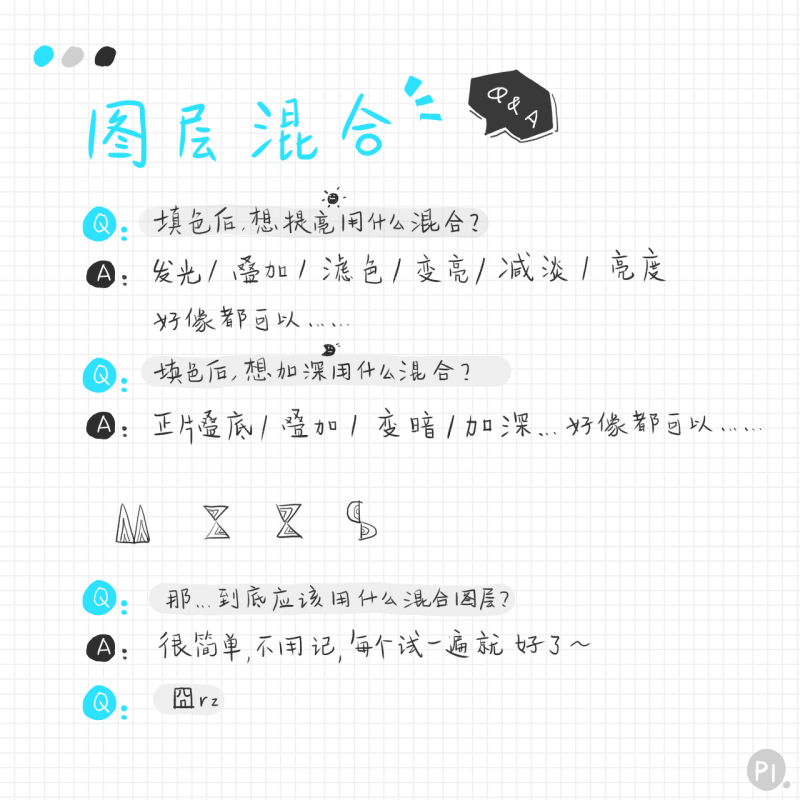 图层混合
Q&A
Q: 填色后,想提亮用什么混合?
A: 发光/叠加/滤色/变亮/减淡/亮度
好像都可以……
Q: 填色后,想加深用什么混合?
A: 正片叠底/叠加/变暗/加深…好像都可以……
Q: 那…到底应该用什么混合图层?
A: 很简单,不用记,每个试一遍就好了~
Q: 囧rz
P1.